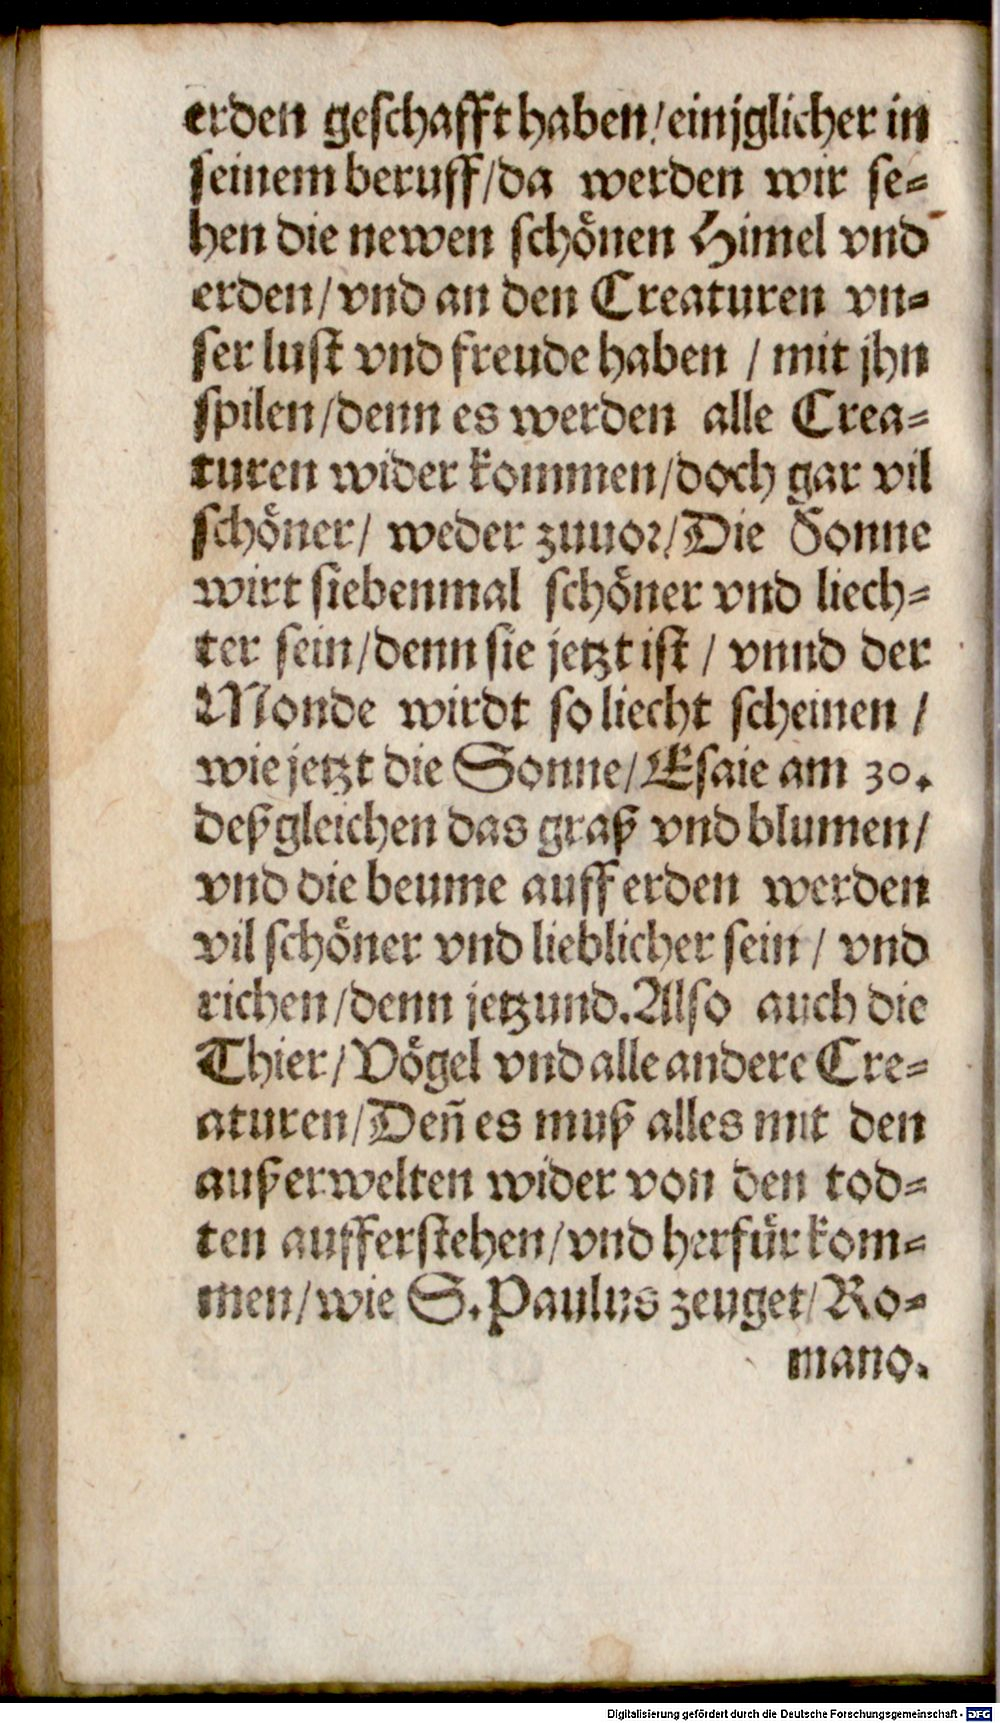 erden geschafft haben/ einjglicher in
seinem beruff/ da werden wir se=
hen die newen schönen Himel vnd
erden/ vnd an den Creaturen vn=
ser lust vnd freude haben / mit jhn
spilen/ denn es werden alle Crea=
turen wider kommen/ doch gar vil
schöner/ weder zuuor/ Die Sonne
wirt siebenmal schöner vnd liech=
ter sein/ denn sie jetzt ist / vnnd der
Monde wirdt so liecht scheinen /
wie jetzt die Sonne/ Esaie am 30.
deßgleichen das graß vnd blumen/
vnd die beume auff erden werden
vil schöner vnd lieblicher sein / vnd
richen/ denn jetzund. Also auch die
Thier/ Vögel vnd alle andere Cre=
aturen/ Deñ es muß alles mit den
außerwelten wider von den tod=
ten aufferstehen/ vnd herfür kom=
men/ wie S. Paulus zeuget/ Ro=
mano.
Digitalisierung gefördert durch die Deutsche Forschungsgemeinschaft - DFG